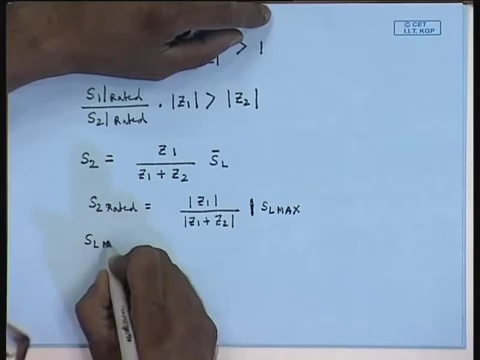 © CET
I.I.T. KGP
> 1
S1|Rated / S2|Rated . |Z1| > |Z2|
S2 = Z1 / Z1 + Z2 S̄L
S2 Rated = |Z1| / |Z1 + Z2| | SLMAX
SLM